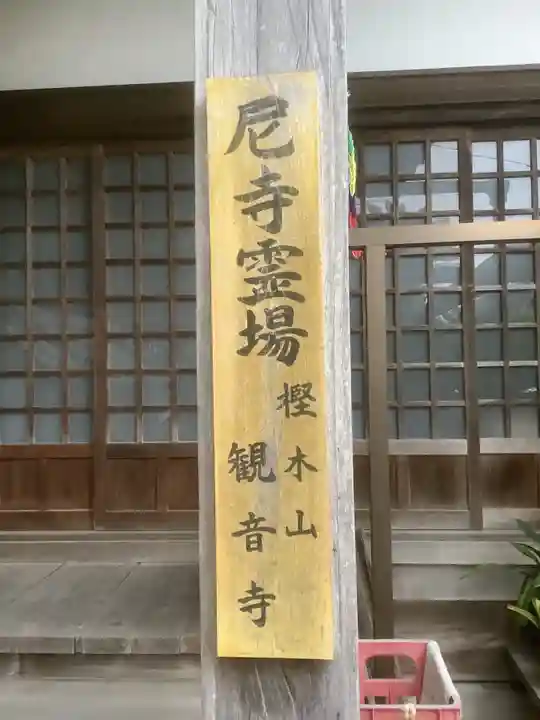 尼寺霊場
樫木山
観音寺